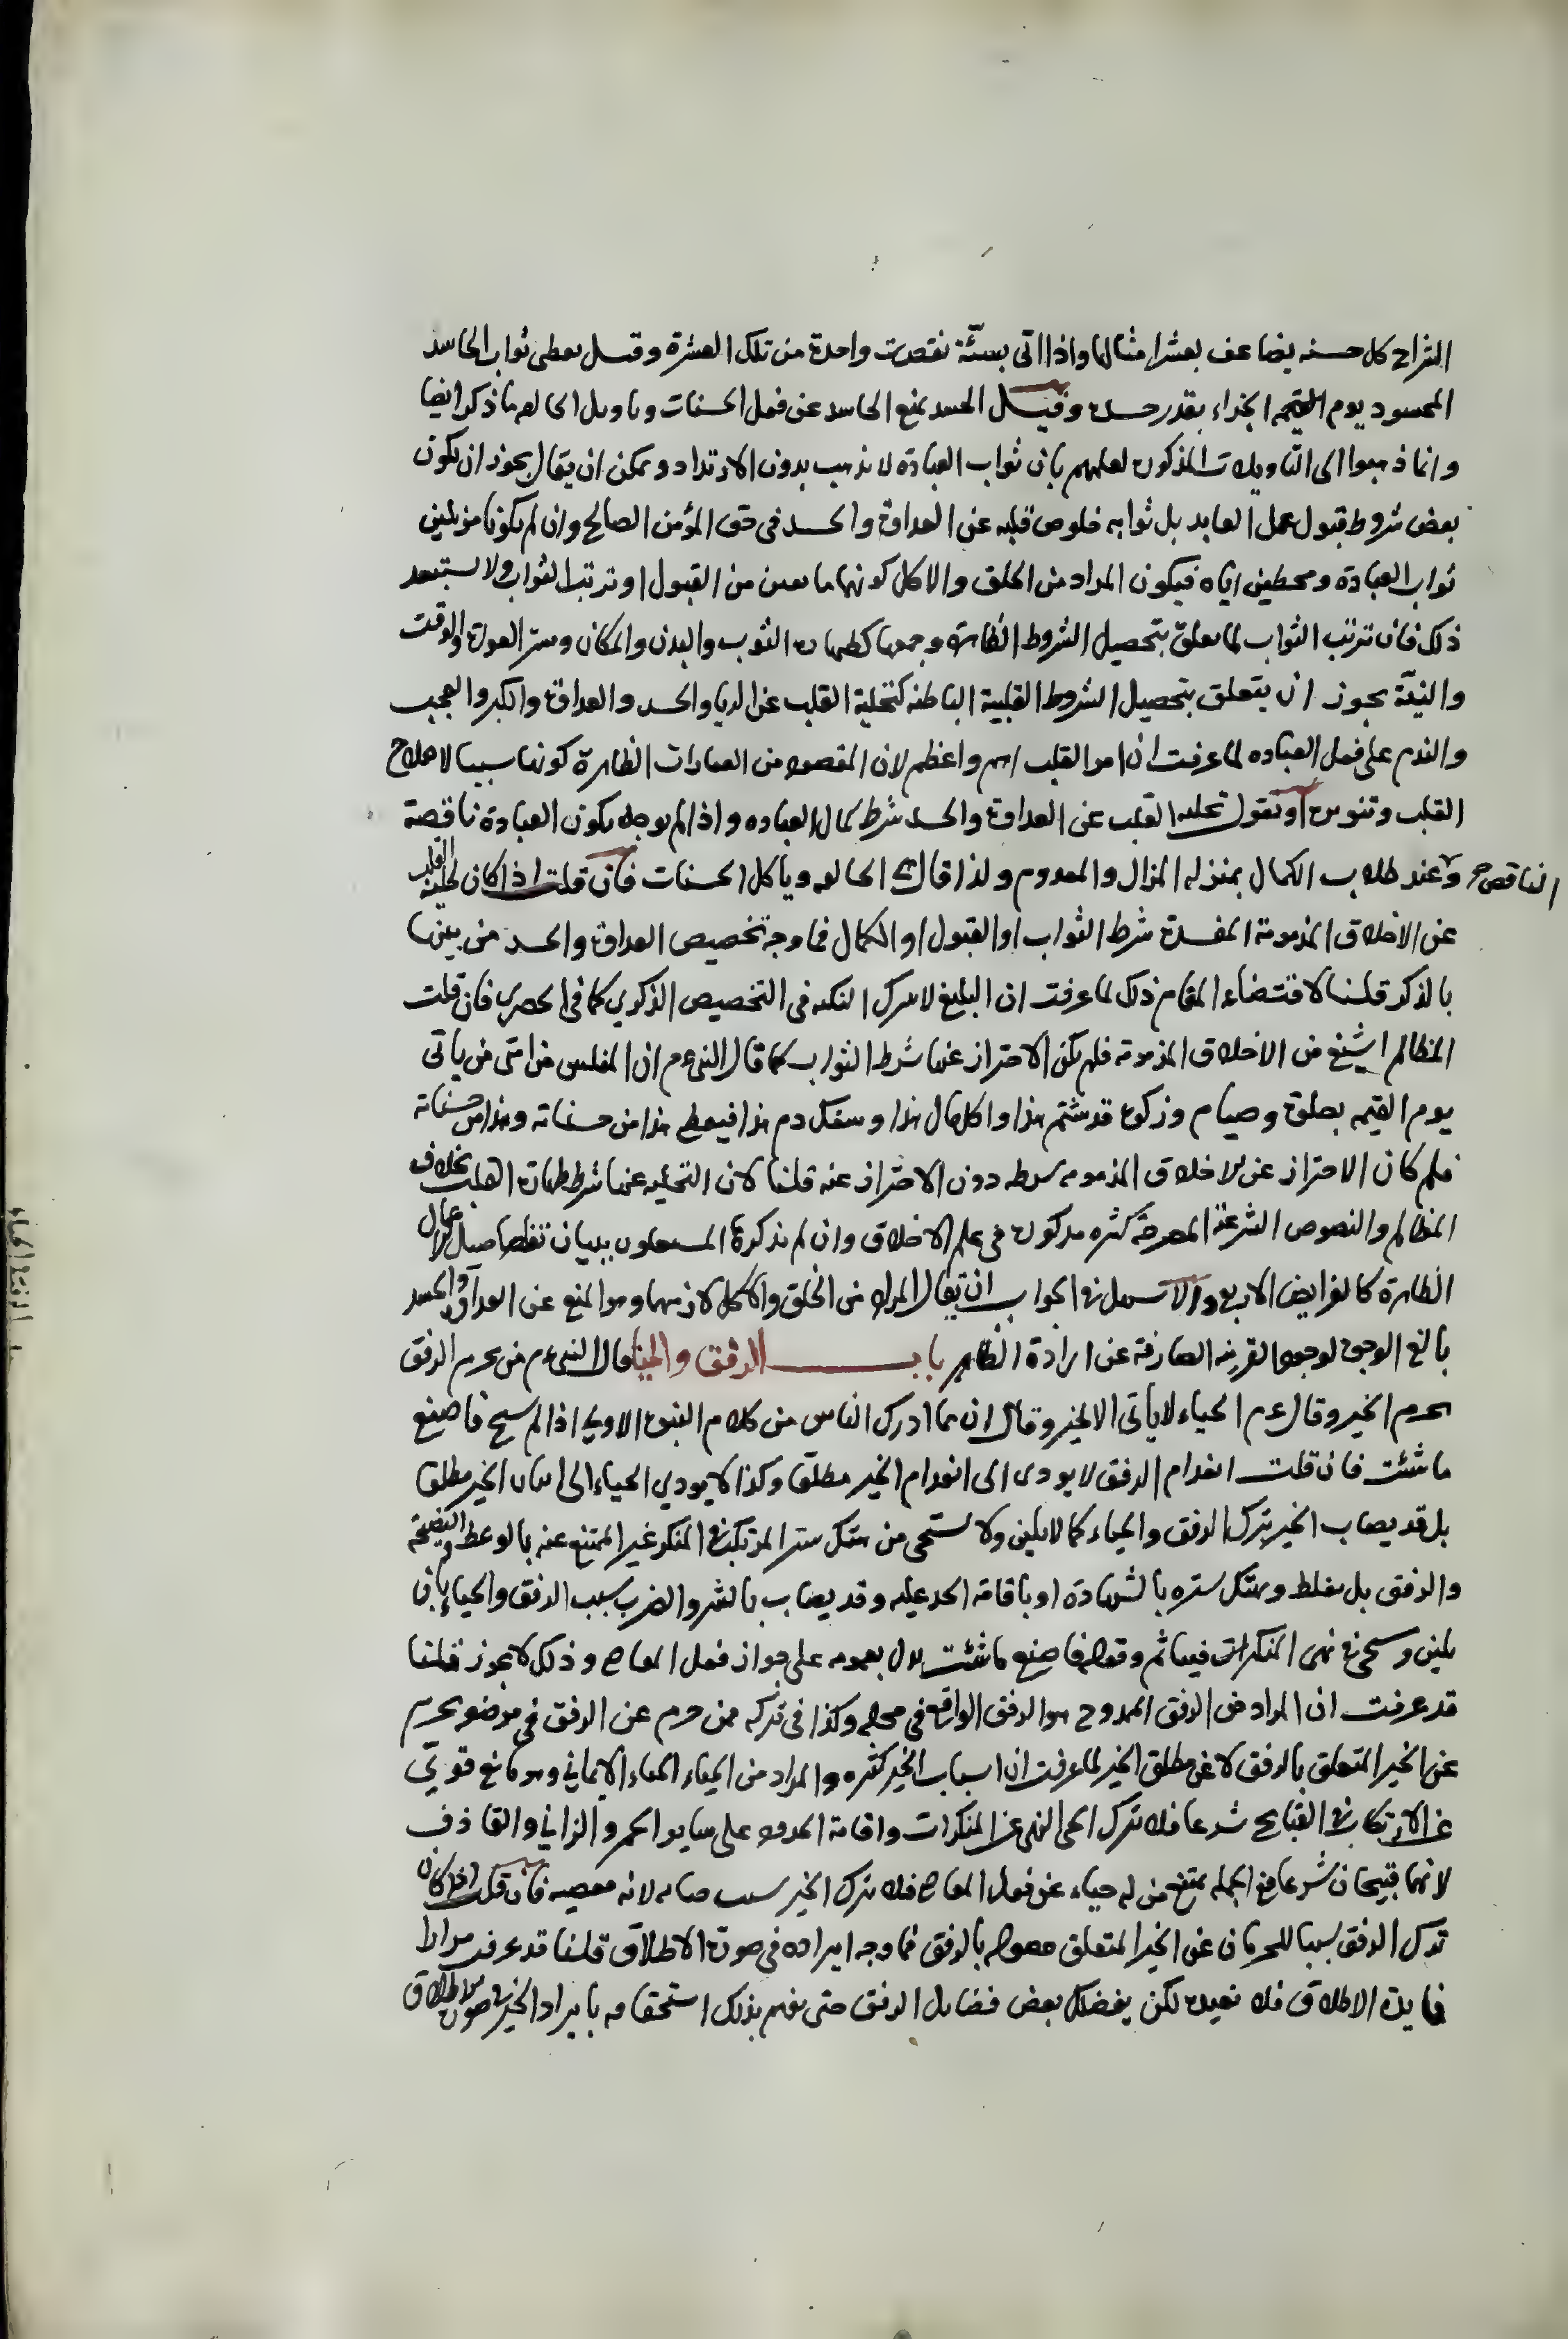 الشراح كل حسنه يضاعف بعشر امثالها واذا اتى بسيّئة نقصت واحدة من تلك العشرة وقيل يعطى ثواب الحاسد
المحسود يوم القيمه الجزاء بقدر حسده وقيل الحسد يمنع الحاسد عن فعل الحسنات وتاويل الحالقه ما ذكر ايضا
وانما ذهبوا الى التاويلات المذكوره لعلمهم بان ثواب العبادة لا يذهب بدون الارتداد ويمكن ان يقال يجوز ان يكون
بعض شروط قبول عمل العابد بل ثوابه خلوص قلبه عن العداوة والحسد فى حق المؤمن الصالح وان لم يكونا مزيلين
ثواب العبادة ومحبطين اياه فيكون المراد من الحلق والاكل كونهما مانعين من القبول او ترتب الثواب ولا يستبعد
ذلك فان ترتب الثواب لما تعلق بتحصيل الشروط الظاهرة وجمعها كطهارة الثوب والبدن والمكان وستر العورة والوقت
والنيّة يجوز ان يتعلق بتحصيل الشروط القلبية الباطنه كتخلية القلب عن الريا والحسد والعداوة والكبر والعجب
والندم على فعل العباده لما عرفت ان امر القلب اهم واعظم لان المقصود من العبادات الظاهرة كونها سببا لاصلاح
القلب وتنويره او نقول تخليه القلب عن العداوة والحسد شرط كمال العباده واذا لم يوجد يكون العبادة ناقصة
الناقص وعند طلاب الكمال بمنزله المزال والمعدوم ولذا قال الحالقه وياكل الحسنات فان قلت اذا كان تخليه القلب
عن الاخلاق المذمومة المفسدة شرط الثواب او القبول او الكمال فما وجه تخصيص العداوة والحسد من بينها
بالذكر قلنا لاقتضاء المقام ذلك لما عرفت ان البليغ لا يترك النكته فى التخصيص الذكري كما فى الحصري فان قلت
المظالم اشنع من الاخلاق المذمومة فلم يكن الاحتراز عنها شرط الثواب كما قال النبى عم ان المفلس من امتى من ياتى
يوم القيمه بصلوة وصيام وزكوة قد شتم هذا واكل مال هذا وسفك دم هذا فيعطى هذا من حسناته وهذا من حسناته
فلم كان الاحتراز عن الاخلاق المذمومه شرطه دون الاحتراز عنه قلنا لان التخليه عنها شرط طهارة القلب بخلاف
المظالم والنصوص الشرعية المصرحة كثيره مذكورة فى علم الاخلاق وان لم يذكره المشتغلون ببيان تفاصيل الاعمال
الظاهرة كالفرايض الاربع والاسهل فى الجواب ان يقال المراد من الحلق والاكل لازمهما وهو المنع عن العداوة والحسد
بابلغ الوجوه لوجود القرينه الصارفة عن ارادة الظاهر باب الرفق والحيا قال النبى عم من يحرم الرفق
يحرم الخير وقال عم الحياء لا ياتى الا بخير وقال ان مما ادرك الناس من كلام النبوة الاولى اذا لم تستح فاصنع
ما شئت فان قلت انعدام الرفق لا يودى الى انعدام الخير مطلقا وكذا لا يودي الحياء الى اتيان الخير مطلقا
بل قد يصاب الخير بترك الرفق والحياء كما لا يلين ولا يستحى من هتك ستر المرتكب فى المنكر غير الممتنع عنه بالوعظ والنصيحة
والرفق بل يغلظ ويهتك ستره بالشهادة او باقامة الحد عليه وقد يصاب بالشر والضرب بسبب الرفق والحياء بان
يلين ويستحى فى نهى المنكرات فيها ثم وقوله فاصنع ما شئت يدل بعمومه على جواز فعل المعاصى وذلك لا يجوز قلنا
قد عرفت ان المراد من الرفق الممدوح هو الرفق الواقع فى محله وكذا فى تركه فمن حرم عن الرفق فى موضعه يحرم
عن الخير المتعلق بالرفق لا عن مطلق الخير لما عرفت ان اسباب الخير كثيره والمراد من الحياء الحياء الايماني وهو مانع قوي
عن الارتكاب فى القبايح شرعا فلا يترك الحى النهى عن المنكرات واقامة الحدود على شارب الخمر والزانى والقاذف
لانهما قبيحان شرعا فى الجمله يمتنع من له حياء عن فعل المعاصى فلا يترك الخير بسبب حيائه لانه معصيه فان قلت اذا كان
ترك الرفق سببا للحرمان عن الخير المتعلق حصوله بالرفق فما وجه ايراده فى صورة الاطلاق قلنا قد عرفت مرارا
فايدة الاطلاق فلا نعيده لكن بعض فضايل الرفق حتى يفهم بذلك استحقاقه بايراد الخير فى صورة الاطلاق